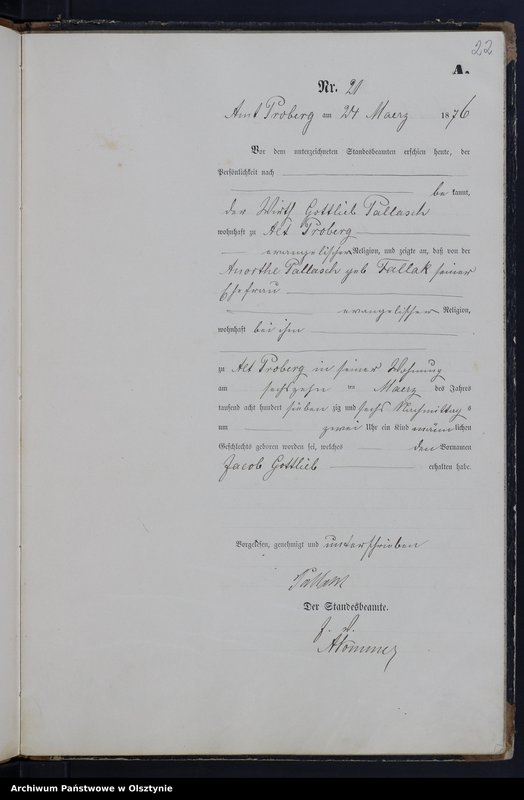 22
A.
Nr. 21
Amt Proberg am 24 Maerz 1876
Vor dem unterzeichneten Standesbeamten erschien heute, der
Persönlichkeit nach
bekannt,
der Wirth Gottlieb Pallasch
wohnhaft zu Alt Proberg
evangelischer Religion, und zeigte an, daß von der
Anorthe Pallasch geb Fallak seiner
Ehefrau
evangelischer Religion,
wohnhaft bei ihm
zu Alt Proberg in seiner Wohnung
am sechszehn ten Maerz des Jahres
tausend acht hundert sieben zig und sechs Nachmittags
um zwei Uhr ein Kind männlichen
Geschlechts geboren worden sei, welches den Vornamen
Jacob Gottlieb erhalten habe.
Vorgelesen, genehmigt und unterschrieben
Der Standesbeamte.
Archiwum Państwowe w Olsztynie